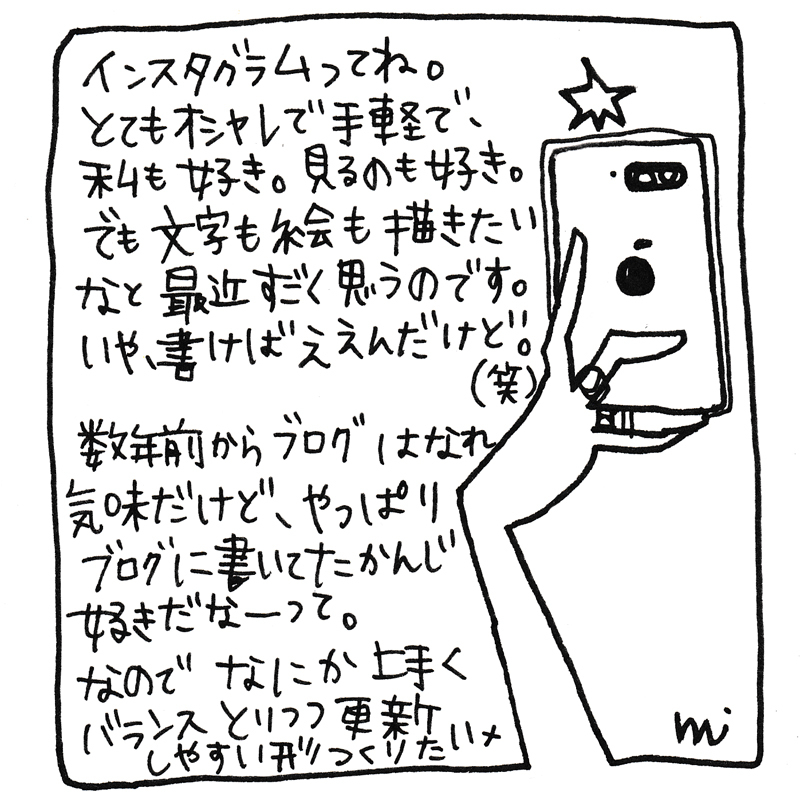 インスタグラムってね。
とてもオシャレで手軽で、
私も好き。見るのも好き。
でも文字も絵も描きたい
なと最近すごく思うのです。
いや、書けばええんだけど。
(笑)
数年前からブログはなれ
気味だけど、やっぱり
ブログに書いてたかんじ
好きだなーって。
なので なにか上手く
バランスとりつつ更新
しやすい形つくりたいメ
mi